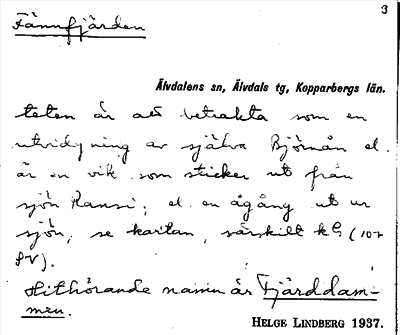 3
Fännfjärden
Älvdalens sn, Älvdals tg, Kopparbergs län.
teten är att betrakta som en
utvidgning av själva Björnån el.
är en vik som sticker ut från
sjön Ransi; el. en ågång ut ur
sjön; se kartan, särskilt kb (107
SV).
Hithörande namn är Fjärddam-
men.
HELGE LINDBERG 1937.